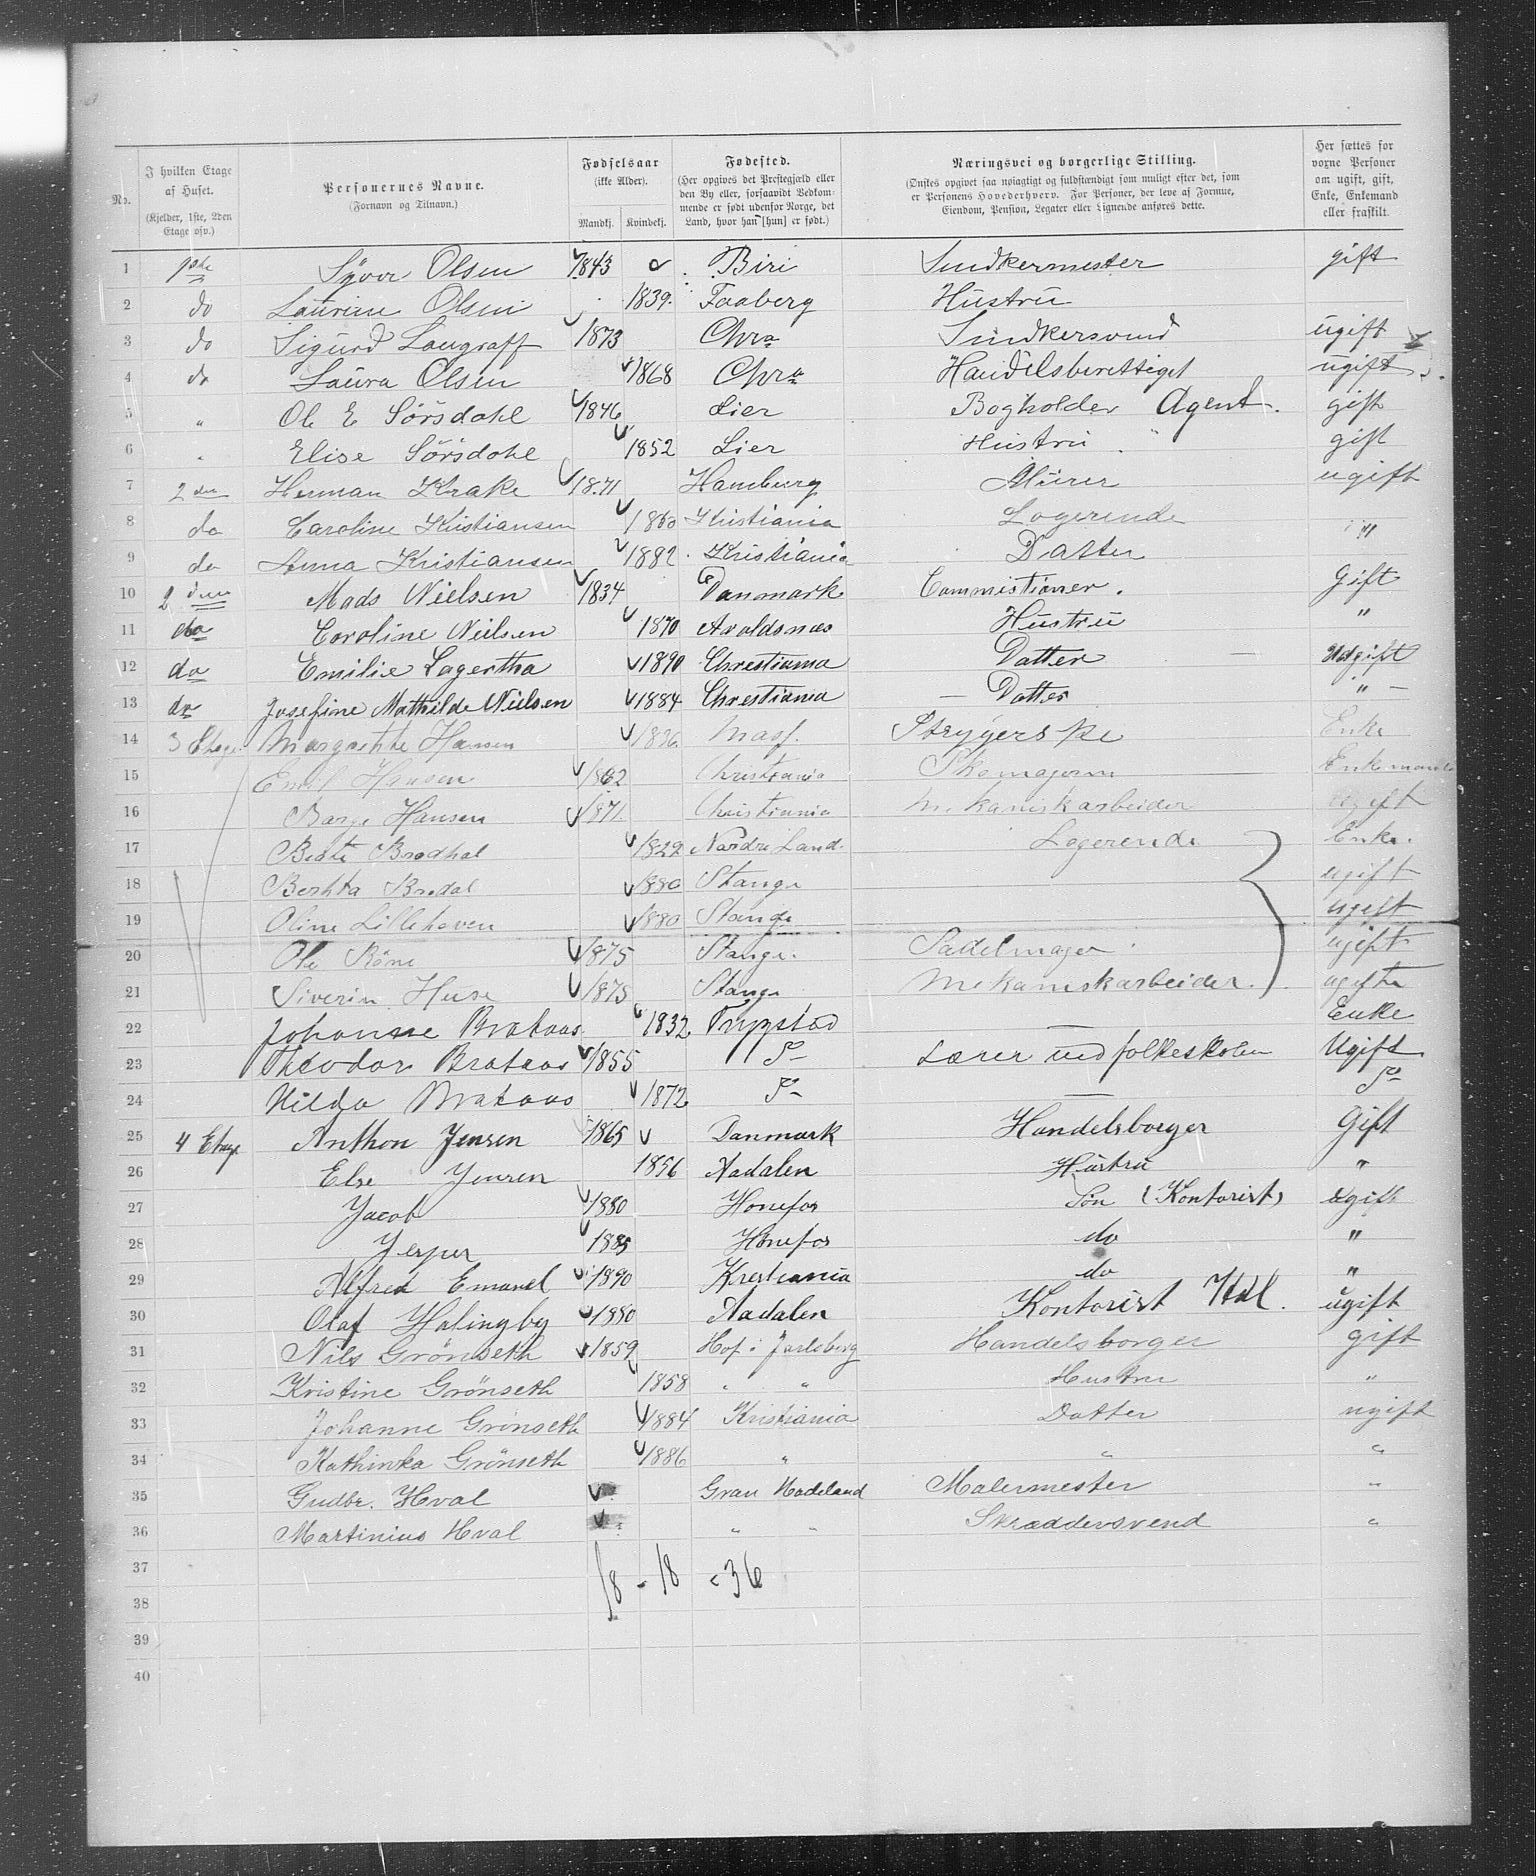 No.
I hvilken Etage af Huset.
(Kjelder, 1ste, 2den Etage osv.)
Personernes Navne.
(Fornavn og Tilnavn.)
Fødselsaar
(ikke Alder).
Mandkj. Kvindekj.
Fødested.
(Her opgives det Præstegjæld eller den By eller, forsaavidt Bedkommende er født udenfor Norge, det Land, hvor han [hun] er født.)
Næringsvei og borgerlige Stilling.
(Ønskes opgivet saa nøiagtigt og fuldstændigt som muligt efter det, som er Personens Hovederhverv. For Personer, der leve af Formue, Eiendom, Pension, Legater eller Lignende anføres dette.
Her sættes for voxne Personer om ugift, gift, Enke, Enkemand eller fraskilt.
1 1ste Syver Olsen 1843 Biri Snedkermester gift
2 do Laurine Olsen 1839 Faaberg Hustru
3 do Sigurd Langraff 1873 Chra Snedkersvend ugift
4 do Laura Olsen 1868 Chra Handelsberettiget ugift
5 " Ole E Sörsdahl 1846 Lier Bogholder Agent. gift
6 " Elise Sörsdahl 1852 Lier Hustru gift
7 2den Herman Krake 1871 Hamburg Murer ugift
8 do Caroline Kristiansen 1860 Kristiania Logerende "
9 do Anna Kristiansen 1882 Kristiania Datter
10 2den Mads Nielsen 1834 Danmark Commistioner. Gift
11 do Caroline Nielsen 1870 Avaldsnæs Hustru "
12 do Emilie Lagertha 1890 Christiania Datter — Udgift
13 do Josefine Mathilde Nielsen 1884 Christiania — Datter " —
14 3 Etage Margrethe Hansen 1836 Strygerske Enke
15 Emil Hansen 1862 Christiania Skomager Enkemand
16 Hansen 1871. Christiania Mekaniskarbeider ugift
17 Beate Bredhal 1822 Nordre Land. Logerende Enke.
18 Berhta Bredal 1880 Stange ugift
19 Oline Lillehaven 1880 Stange ugift
20 Ole Röne 1875 Stange. Sadelmager ugift
21 Siverin Huse 1875 Stange Mekaniskarbeider. ugifte
22 Johanne Brataas 1832 Trygstad — Enke
23 Theodor Brataas 1855 Do Lærer ved folkeskolen Ugift
24 Hilda Brataas 1872 Do — Do
25 4 Etage Anthon Jensen 1865 Danmark Handelsborger Gift
26 Else Jensen 1856 Aadalen Hustru "
27 Jacob 1880 Honefos Søn (Kontorist) Ugift
28 Jesper 1885 Hönefos do "
29 Alfred Emanuel 1890 Krestiania do "
30 Olaf Halingby 1880 Aadalen Kontorist ugift
31 Nils Grönseth 1859 Hof i Jarlsberg Handelsborger gift
32 Kristine Grönseth 1858 " " Hustru "
33 Johanne Grönseth 1884 Kristiania Datter ugift
34 Kathinka Grönseth 1886 " " "
35 Gudbr. Hval Gran Hadeland Malermester "
36 Martinius Hval " " Skræddersvend "
37 18 - 18 = 36
38
39
40